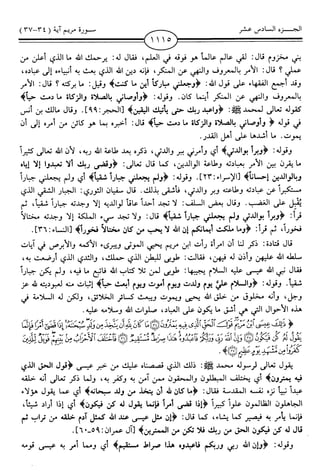 الجزء السادس عشر
سورة مريم آية (٣٤ - ٣٧)
١١١٥
بني مخزوم قال: لقي عالم عالماً هو فوقه في العلم، فقال له: يرحمك الله ما الذي أعلن من
عملي ؟ قال: الأمر بالمعروف والنهي عن المنكر، فإنه دين الله الذي بعث به أنبياءه إلى عباده،
وقد أجمع الفقهاء على قول الله: ﴿وجعلني مباركاً أين ما كنت﴾ وقيل: ما بركته ؟ قال: الأمر
بالمعروف والنهي عن المنكر أينما كان. وقوله: ﴿وأوصاني بالصلاة والزكاة ما دمت حياً﴾
كقوله تعالى لمحمد ﷺ: ﴿واعبد ربك حتى يأتيك اليقين﴾ [الحجر: ٩٩]. وقال مالك بن أنس
في قوله ﴿ وأوصاني بالصلاة والزكاة ما دمت حياً﴾ قال: أخبره بما هو كائن من أمره إلى أن
يموت. ما أشدها على أهل القدر.
وقوله: ﴿وبراً بوالدتي﴾ أي وأمرني ببر والدتي، ذكره بعد طاعة الله ربه، لأن الله تعالى كثيراً
ما يقرن بين الأمر بعبادته وطاعة الوالدين، كما قال تعالى: ﴿وقضى ربك ألا تعبدوا إلا إياه
وبالوالدين إحساناً﴾ [الإسراء: ٢٣]. وقوله: ﴿ولم يجعلني جباراً شقياً﴾ أي ولم يجعلني جباراً
مستكبراً عن عبادته وطاعته وبر والدتي، فأشقى بذلك. قال سفيان الثوري: الجبار الشقي الذي
يُقْبِل على الغضب. وقال بعض السلف: لا تجد أحداً عاقاً لوالديه إلا وجدته جباراً شقياً، ثم
قرأ: ﴿وبراً بوالدتي ولم يجعلني جباراً شقياً﴾ قال: ولا تجد سيىء الملكة إلا وجدته مختالاً
فخوراً، ثم قرأ: ﴿وما ملكت أيمانكم إن الله لا يحب من كان مختالاً فخوراً﴾ [النساء: ٣٦].
قال قتادة: ذكر لنا أن امرأة رأت ابن مريم يحيي الموتى ويبرىء الأكمه والأبرص في آيات
سلطه الله عليهن وأذن له فيهن، فقالت: طوبى للبطن الذي حملك، والثدي الذي أرضعت به،
فقال نبي الله عيسى عليه السلام يجيبها: طوبى لمن تلا كتاب الله فاتبع ما فيه، ولم يكن جباراً
شقياً. وقوله: ﴿والسلام عليَّ يوم ولدت ويوم أموت ويوم أبعث حياً﴾ إثبات منه لعبوديته لله عز
وجل، وأنه مخلوق من خلق الله يحيى ويموت ويبعث كسائر الخلائق، ولكن له السلامة في
هذه الأحوال التي هي أشق ما يكون على العباد، صلوات الله وسلامه عليه.
﴿ ذَٰلِكَ عِيسَى ابْنُ مَرْيَمَ قَوْلَ الْحَقِّ الَّذِي فِيهِ يَمْتَرُونَ ﴿٣٤﴾ مَا كَانَ لِلَّهِ أَن يَتَّخِذَ مِن وَلَدٍ سُبْحَانَهُ إِذَا قَضَىٰ أَمْرًا فَإِنَّمَا
يَقُولُ لَهُ كُن فَيَكُونُ ﴿٣٥﴾ وَإِنَّ اللَّهَ رَبِّي وَرَبُّكُمْ فَاعْبُدُوهُ هَٰذَا صِرَاطٌ مُّسْتَقِيمٌ ﴿٣٦﴾ فَاخْتَلَفَ الْأَحْزَابُ مِن بَيْنِهِمْ فَوَيْلٌ لِّلَّذِينَ
كَفَرُوا مِن مَّشْهَدِ يَوْمٍ عَظِيمٍ ﴿٣٧﴾ ﴾.
يقول تعالى لرسوله محمد ﷺ: ذلك الذي قصصناه عليك من خبر عيسى ﴿قول الحق الذي
فيه يمترون﴾ أي يختلف المبطلون والمحقون ممن آمن به وكفر به، ولما ذكر تعالى أنه خلقه
عبداً نبياً نزه نفسه المقدسة فقال: ﴿ما كان لله أن يتخذ من ولد سبحانه﴾ أي عما يقول هؤلاء
الجاهلون الظالمون علواً كبيراً ﴿إذا قضى أمراً فإنما يقول له كن فيكون﴾ أي إذا أراد شيئاً،
فإنما يأمر به فيصير كما يشاء، كما قال: ﴿إن مثل عيسى عند الله كمثل آدم خلقه من تراب ثم
قال له كن فيكون الحق من ربك فلا تكن من الممترين﴾ [آل عمران: ٥٩ ـ ٦٠].
وقوله: ﴿وإن الله ربي وربكم فاعبدوه هذا صراط مستقيم﴾ أي ومما أمر به عيسى قومه